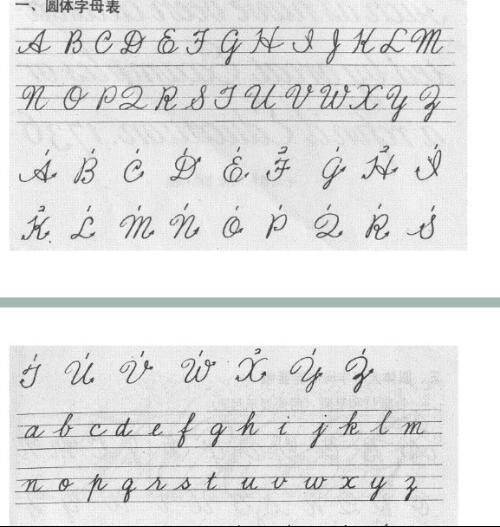 一、圆体字母表
A B C D E F G H I J K L M
N O P Q R S T U V W X Y Z
A B C D E F G H I
K L M N O P Q R S
T U V W X Y Z
a b c d e f g h i j k l m
n o p q r s t u v w x y z